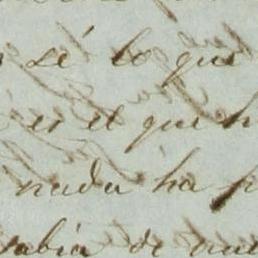 sé lo que
es el que
nada ha
abia de